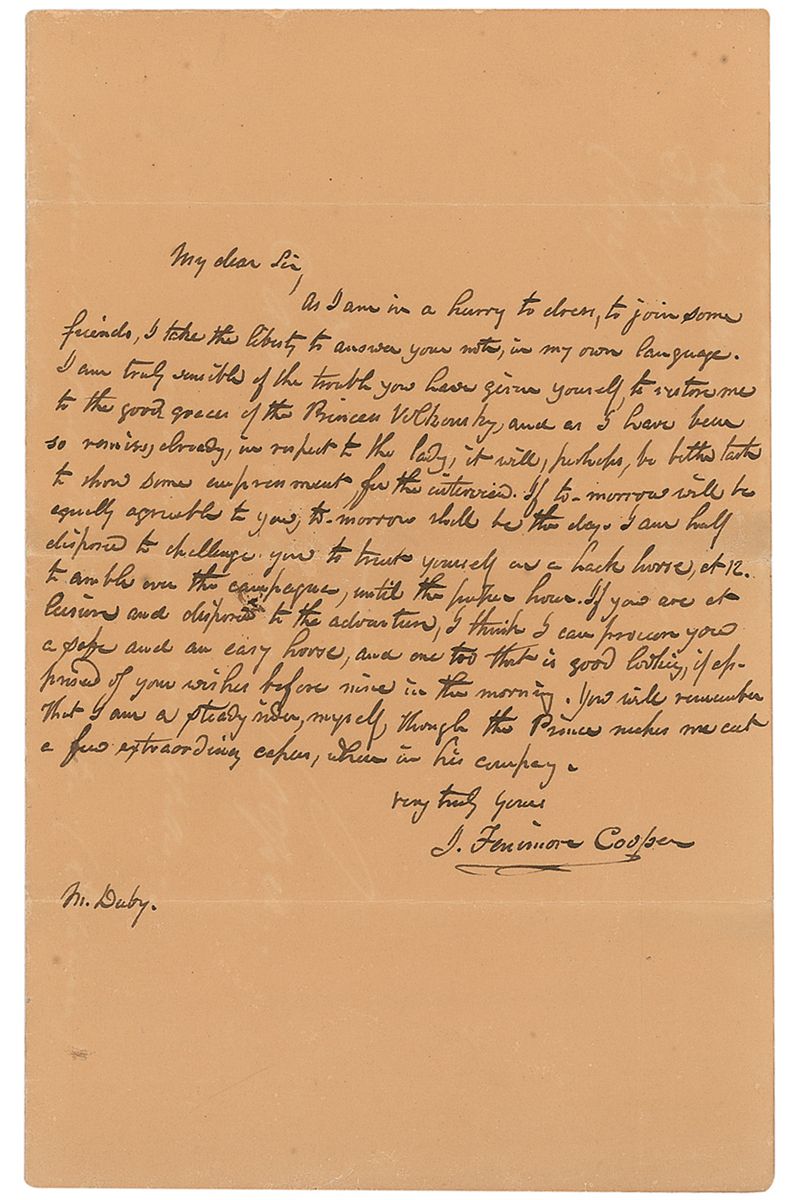 My dear Sir,
As I am in a hurry to dress, to join some
friends, I take the liberty to answer your note, in my own language.
I am truly sensible of the trouble you have given yourself, to restore me
to the good graces of the Princess Volkonsky, and as I have been
so remiss, already, in respect to the lady, it will, perhaps, be better taste
to show some empressment for the interview. If to-morrow will be
equally agreeable to you, to-morrow shall be the day. I am half
disposed to challenge you to trust yourself on a hack horse, at 12.
to amble over the campagna, until the proper hour. If you are at
leisure and disposed to the adventure, I think I can procure you
a safe and an easy horse, and one too that is good looking, if ap-
prised of your wishes before nine in the morning. You will remember
that I am a steady rider, myself, though the Prince makes me cut
a few extraordinary capers, when in his company.
very truly yours
J. Fenimore Cooper
M. Duby.